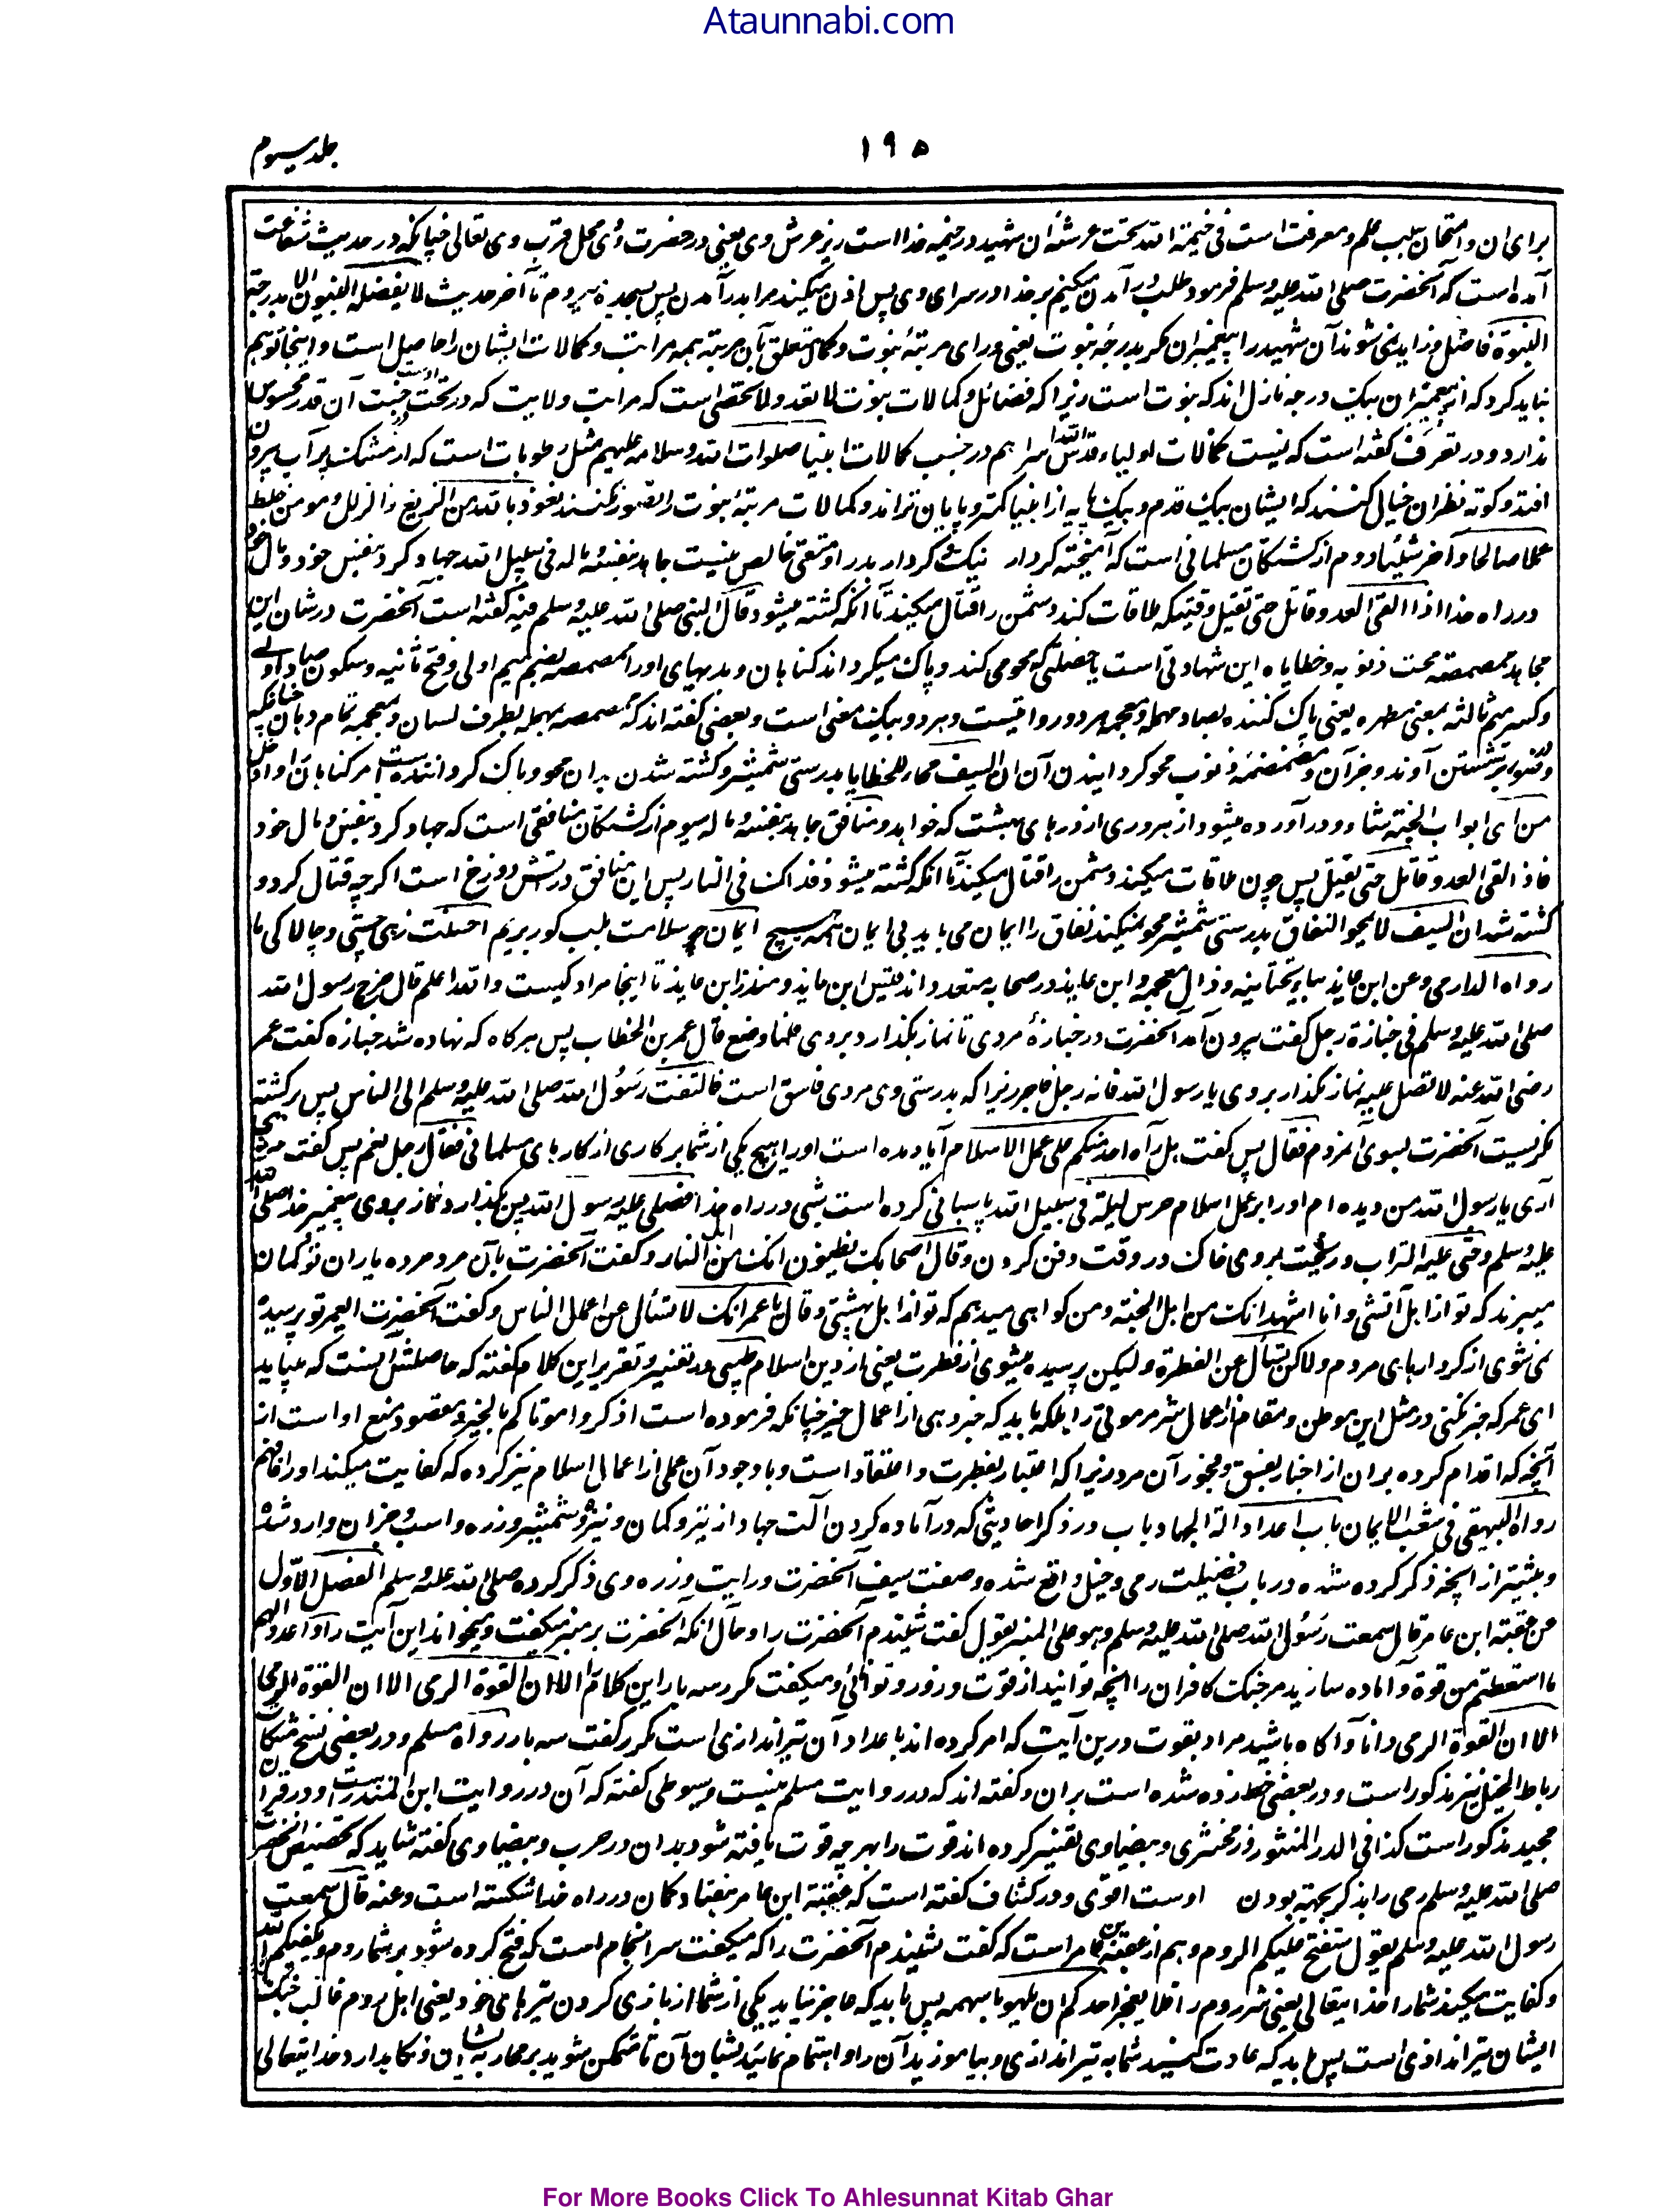 Ataunnabi.com
۱۹۵
جلد سیوم
برای ان و امتحان بسبب علم و معرفت است فی خیمة الله تحت عرشه ان شهید در خیمه خدا است زیر عرش وی یعنی در حضرت وی محل قرب وی تعالی چنانکه در حدیث شفاعت
آمده است که آنحضرت صلی الله علیه وسلم فرمود طلب در آمدن میکنم بر خدا در سرای وی پس اذن میکند مرا بدر آمدن پس بسجده میروم تا آخر حدیث لا یفضله النبیون الا بدرجة
النبوة فاضل و زاید نمی شوند آن شهید را پیغمبران مگر بدرجهٔ نبوت یعنی ورای مرتبهٔ نبوت و کمال متعلق بآن مرتبه همه مراتب و کمالات ایشان را حاصل است و اینجا توهم
نباید کرد که از پیغمبران بیک درجه نازل اند که نبوت است زیرا که فضائل و کمالات نبوت لا تعد ولا تحصی است که مراتب ولایت که در تحت اوست در جنب آن قدر محسوس
ندارد و در تعرف گفته است که نیست کمالات اولیاء قدس الله اسرارهم در جنب کمالات انبیا صلوات الله وسلامه علیهم مثل رطوبات است که از مشک پر آب بیرون
افتد و کوته نظران خیال کنند که ایشان بیک قدم و بیک پایه از انبیا کمتر و پایان تر اند و کمالات مرتبهٔ نبوت را تصور نکنند نعوذ بالله من الزیغ والزلل و مومن خلط
عملا صالحا وآخر سیئا دوم از کشتگان مسلمانی است که آمیخته کردار نیک و کردار بد را و متقی خالص نیست جاهد بنفسه وماله فی سبیل الله جهاد کرد بنفس خود و مال خود
در راه خدا اذا لقی العدو قاتل حتی یقتل وقتیکه ملاقات کند دشمن را قتال میکند تا آنکه کشته میشود قال النبی صلی الله علیه وسلم فیه گفته است آنحضرت در شان این
مجاهد ممصمصة محت ذنوبه وخطایاه این شهادتی است یا خصلتی که محو می کند و پاک میگرداند گناهان و بدیهای او را ممصمصه بضم میم اولی و فتح ثانیه و سکون صاد اولی
وکسر میم ثالثه بمعنی مطهره یعنی پاک کننده بصاد مهمله و معجمه هر دو روایتست و هر دو بیک معنی است و بعضی گفته اند که مصمصه بمهمله بطرف لسان و بمعجمه تمام دهان چنانکه
من ای ابواب الجنة شاء و در آورده میشود از هر دری از درهای بهشت که خواهد و منافق جاهد بنفسه وماله سیوم از کشتگان منافقی است که جهاد کرد بنفس و مال خود
فاذا لقی العدو قاتل حتی یقتل پس چون ملاقات میکند دشمن را قتال میکند تا آنکه کشته میشود فذاک فی النار پس این منافق در آتش دوزخ است اگرچه قتال کرد و
کشته شد ان السیف لا یمحو النفاق بدرستی شمشیر محو نمیکند نفاق را ایمان می باید بی ایمان همه هیچ ایمان چو سلامت بلب گور بریم احسنت زهی چستی و چالاکی ما
رواه الدارمی وعن ابن عایذ بباء تحتانیه و ذال معجمه و ابن عایذ در صحابه متعدد اند قیس ابن عایذ و منذر ابن عایذ تا اینجا مراد کیست والله اعلم قال خرج رسول الله
صلی الله علیه وسلم فی جنازة رجل گفت بیرون آمد آنحضرت در جنازهٔ مردی تا نماز بگذارد بروی فلما وضع قال عمر بن الخطاب پس هرگاه که نهاده شد جنازه گفت عمر
رضی الله عنه لا تصل علیه نماز مگذار بروی یا رسول الله فانه رجل فاجر زیرا که بدرستی وی مردی فاسق است فالتفت رسول الله صلی الله علیه وسلم الی الناس پس برگشته
نگریست آنحضرت بسوی مردم فقال پس گفت هل راه احد منکم علی عمل الاسلام آیا دیده است او را هیچ یکی از شما بر کاری از کارهای مسلمانی فقال رجل نعم پس گفت مردی
آری یا رسول الله من دیده ام او را بر عمل اسلام حرس لیلة فی سبیل الله پاسبانی کرده است شبی در راه خدا فصلی علیه رسول الله پس بگذارد نماز بروی پیغمبر خدا صلی الله
علیه وسلم وحثی علیه التراب و ریخت بروی خاک در وقت دفن کردن وقال اصحابک یظنون انک من اهل النار و گفت آنحضرت بآن مرد مرده یاران تو گمان
میبرند که تو از اهل آتشی وانا اشهد انک من اهل الجنة ومن گواهی میدهم که تو از اهل بهشتی وقال یا عمر انک لا تسأل عن اعمال الناس و گفت آنحضرت ای عمر تو پرسیده
نمی شوی از کردارهای مردم ولکن تسأل عن الفطرة ولیکن پرسیده میشوی از فطرت یعنی از دین اسلام طیبی در تفسیر و تقریر این کلام گفته که حاصلش اینست که نباید
ای عمر که خبر کنی در مثل این موطن و مقام از اعمال شر مر موتی را بلکه باید که خبر دهی از اعمال خیر چنانکه فرموده است اذکروا موتاکم بالخیر و مقصود منع او است از
آنچه که اقدام کرده بر ان از اخبار بفسق و فجور آن مرد زیرا که اعتبار بفطرت و اعتقاد است و با وجود آن عملی از اعمال اسلام نیز کرده که کفایت میکند او را فافهم
رواه البیهقی فی شعب الایمان باب اعداد آلة الجهاد باب در ذکر احادیثی که در آماده کردن آلت جهاد از تیر و کمان و نیزه و شمشیر و زره و اسب و جز ان وارد شده
و بیشتر از آنچه ذکر کرده شده در باب فضیلت رمی و خیل واقع شده و صفت سیف آنحضرت و رایت و زره وی ذکر کرده صلی الله علیه وسلم الفصل الاول
عن عقبة ابن عامر قال سمعت رسول الله صلی الله علیه وسلم وهو علی المنبر یقول گفت شنیدم آنحضرت را و حال آنکه آنحضرت بر منبر میگفت و میخواند این آیت را واعدوا لهم
ما استطعتم من قوة و آماده سازید مر جنگ کافران را آنچه توانید از قوت و زور و توانائی و میگفت مکرر سه بار این کلام الا ان القوة الرمی الا ان القوة الرمی
الا ان القوة الرمی دانا و آگاه باشید مراد بقوت درین آیت که امر کرده اند باعداد آن تیراندازی است مکرر گفت سه بار رواه مسلم و در بعضی نسخ مشکات
رباط الخیل نیز مذکور است و در بعضی خط زده شده است بر ان و گفته اند که در روایت مسلم نیست و سیوطی گفته که آن در روایت ابن المنذر است و در قرآن
مجید مذکور است کذا فی الدر المنثور و زمخشری و بیضاوی تفسیر کرده اند قوت را بهر چه قوت یافته شود بدان در حرب و بیضاوی گفته شاید که تخصیص آنحضرت
صلی الله علیه وسلم رمی را بذکر بجهة بودن اوست اقوی و در کشاف گفته است که عقبة ابن عامر هفتاد کمان در راه خدا شکسته است وعنه قال سمعت
رسول الله علیه وسلم یقول ستفتح علیکم الروم وهم از عقبه بن عامر است که گفت شنیدم آنحضرت را که میگفت سرانجام است که فتح کرده شود بر شما روم ویکفیکم الله
و کفایت میکند شما را خدایتعالی یعنی شر روم را فلا یعجز احدکم ان یلهو باسهمه پس باید که عاجز نیاید یکی از شما از بازی کردن تیرهای خود یعنی اهل روم غالب جنگ
ایشان تیراندازی است پس باید که عادت کنید شما به تیراندازی و بیاموزید آن را و اهتمام نمائید بشان آن تا متمکن شوید بر محاربه ایشان و نگاهدارد خدایتعالی
For More Books Click To Ahlesunnat Kitab Ghar